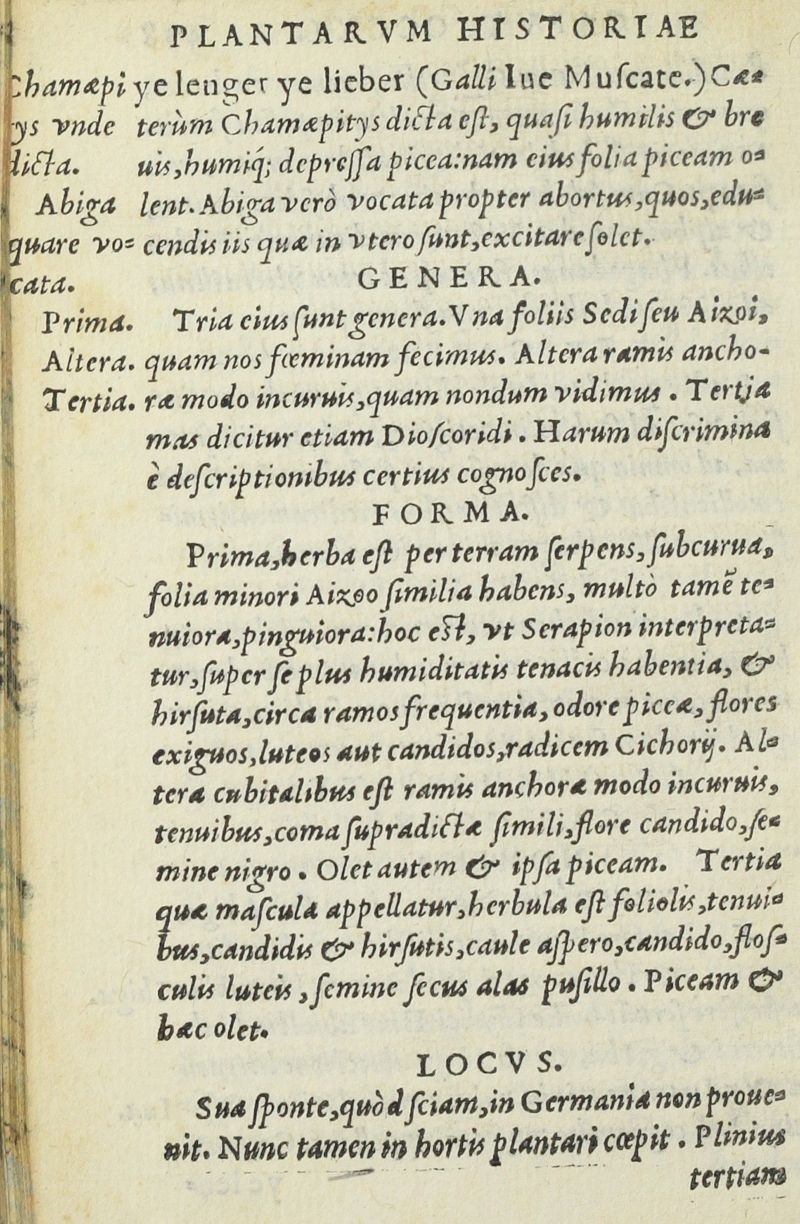 PLANTARVM HISTORIAE
Chamæpi ye lenger ye lieber (Galli Iue Muſcate.) Cæ-
tys vnde terùm Chamæpitys dicta eſt, quaſi humilis & bre
dicta. uis, humiq́; depreſſa picea: nam eius folia piceam o-
Abiga lent. Abiga verò vocata propter abortus, quos, edu-
quare vo- cendis iis quæ in vtero ſunt, excitare ſolet.
cata. GENERA.
Prima. Tria eius ſunt genera. Vna foliis Sedi ſeu Aizoi,
Altera. quam nos fœminam fecimus. Altera ramis ancho-
Tertia. ræ modo incuruis, quam nondum vidimus. Tertia
mas dicitur etiam Dioſcoridi. Harum diſcrimina
è deſcriptionibus certius cognoſces.
FORMA.
Prima, herba eſt per terram ſerpens, ſubcurua,
folia minori Aizoo ſimilia habens, multò tamẽ te-
nuiora, pinguiora: hoc eſt, vt Serapion interpreta-
tur, ſuper ſe plus humiditatis tenacis habentia, &
hirſuta, circa ramos frequentia, odore piceæ, flores
exiguos, luteos aut candidos, radicem Cichorij. Al-
tera cubitalibus eſt ramis anchoræ modo incuruis,
tenuibus, coma ſupradictæ ſimili, flore candido, ſe-
mine nigro. Olet autem & ipſa piceam. Tertia
quæ maſcula appellatur, herbula eſt foliolis, tenui-
bus, candidis & hirſutis, caule aſpero, candido, floſ-
culis luteis, ſemine ſecus alas puſillo. Piceam &
hæc olet.
LOCVS.
Sua ſponte, quòd ſciam, in Germania non proue-
nit. Nunc tamen in hortis plantari cœpit. Plinius
tertiam